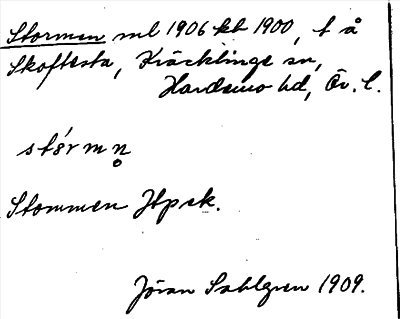 Stormen ml 1906 kb 1900, t å
Skoftesta, Kräcklinge sn,
Hardemo hd, Ör. l.
störmn̥
Stommen Jtpsk.
Jöran Sahlgren 1909.